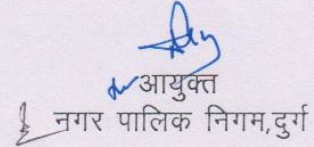 आयुक्त
नगर पालिक निगम,दुर्ग